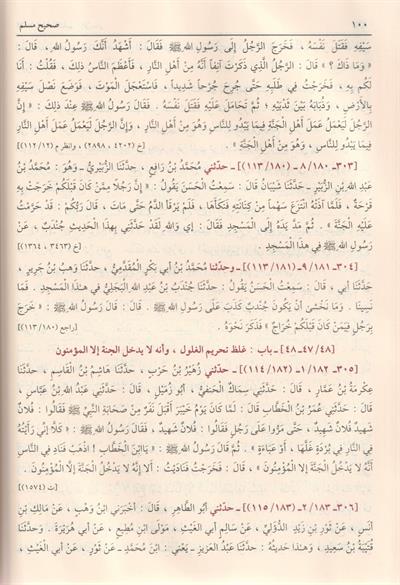 ١٠٠ صحيح مسلم
سَيْفِهِ فَقَتَلَ نَفْسَهُ ، فَخَرَجَ الرَّجُلُ إِلَى رَسُولِ اللهِ ﷺ فَقَالَ : أَشْهَدُ أَنَّكَ رَسُولُ اللهِ . قَالَ :
« وَمَا ذَاكَ ؟ » قَالَ : الرَّجُلُ الَّذِي ذَكَرْتَ آنِفاً أَنَّهُ مِنْ أَهْلِ النَّارِ ، فَأَعْظَمَ النَّاسُ ذَلِكَ ، فَقُلْتُ : أَنَا
لَكُمْ بِهِ ، فَخَرَجْتُ فِي طَلَبِهِ حَتَّى جُرِحَ جُرْحاً شَدِيداً ، فَاسْتَعْجَلَ الْمَوْتَ ، فَوَضَعَ نَصْلَ سَيْفِهِ
بِالأَرْضِ ، وَذُبَابَهُ بَيْنَ ثَدْيَيْهِ ؛ ثُمَّ تَحَامَلَ عَلَيْهِ فَقَتَلَ نَفْسَهُ . فَقَالَ رَسُولُ اللهِ ﷺ عِنْدَ ذَلِكَ : « إِنَّ
الرَّجُلَ لَيَعْمَلُ عَمَلَ أَهْلِ الْجَنَّةِ فِيمَا يَبْدُو لِلنَّاسِ وَهُوَ مِنْ أَهْلِ النَّارِ ، وَإِنَّ الرَّجُلَ لَيَعْمَلُ عَمَلَ أَهْلِ النَّارِ
فِيمَا يَبْدُو لِلنَّاسِ ، وَهُوَ مِنْ أَهْلِ الْجَنَّةِ » . [خ (٤٢٠٢ ، ٢٨٩٨) ، وانظر م (١١٢/١٢)]
[٣٠٣ـ ٨/١٨٠ـ (١١٣/١٨٠)] ـ حدّثني مُحَمَّدُ بْنُ رَافِعٍ ، حَدَّثَنَا الزُّبَيْرِيُّ ـ وَهُوَ : مُحَمَّدُ بْنُ
عَبْدِ اللهِ بْنِ الزُّبَيْرِ ـ حَدَّثَنَا شَيْبَانُ قَالَ : سَمِعْتُ الْحَسَنَ يَقُولُ : « إِنَّ رَجُلاً مِمَّنْ كَانَ قَبْلَكُمْ خَرَجَتْ بِهِ
قَرْحَةٌ ، فَلَمَّا آذَتْهُ انْتَزَعَ سَهْماً مِنْ كِنَانَتِهِ فَنَكَأَهَا ، فَلَمْ يَرْقَأِ الدَّمُ حَتَّى مَاتَ ، قَالَ رَبُّكُمْ : قَدْ حَرَّمْتُ
عَلَيْهِ الْجَنَّةَ » . ثُمَّ مَدَّ يَدَهُ إِلَى الْمَسْجِدِ فَقَالَ : إِي وَاللهِ لَقَدْ حَدَّثَنِي بِهَذَا الْحَدِيثِ جُنْدَبٌ ، عَنْ
رَسُولِ اللهِ ﷺ فِي هَذَا الْمَسْجِدِ . [خ (٣٤٦٣ ، ١٣٦٤)]
[٣٠٤ـ ٩/١٨١ـ (١١٣/١٨١)] ـ وحدّثنا مُحَمَّدُ بْنُ أَبِي بَكْرٍ الْمُقَدَّمِيُّ ، حَدَّثَنَا وَهْبُ بْنُ جَرِيرٍ ،
حَدَّثَنَا أَبِي ، قَالَ : سَمِعْتُ الْحَسَنَ يَقُولُ : حَدَّثَنَا جُنْدَبُ بْنُ عَبْدِ اللهِ الْبَجَلِيُّ فِي هَذَا الْمَسْجِدِ . فَمَا
نَسِينَا . وَمَا نَخْشَى أَنْ يَكُونَ جُنْدَبٌ كَذَبَ عَلَى رَسُولِ اللهِ ﷺ . قَالَ : قَالَ رَسُولُ اللهِ ﷺ : « خَرَجَ
بِرَجُلٍ فِيمَنْ كَانَ قَبْلَكُمْ خُرَاجٌ » فَذَكَرَ نَحْوَهُ . [راجع (١١٣/١٨٠)]
[٤٨/٤٧ـ٤٨] ـ باب : غلظ تحريم الغلول ، وأنه لا يدخل الجنة إلا المؤمنون
[٣٠٥ـ ١/١٨٢ـ (١١٤/١٨٢)] ـ حدّثني زُهَيْرُ بْنُ حَرْبٍ ، حَدَّثَنَا هَاشِمُ بْنُ الْقَاسِمِ ، حَدَّثَنَا
عِكْرِمَةُ بْنُ عَمَّارٍ ، قَالَ : حَدَّثَنِي سِمَاكٌ الْحَنَفِيُّ ، أَبُو زُمَيْلٍ ، قَالَ : حَدَّثَنِي عَبْدُ اللهِ بْنُ عَبَّاسٍ ،
قَالَ : حَدَّثَنِي عُمَرُ بْنُ الْخَطَّابِ قَالَ : لَمَّا كَانَ يَوْمُ خَيْبَرَ أَقْبَلَ نَفَرٌ مِنْ صَحَابَةِ النَّبِيِّ ﷺ فَقَالُوا : فُلَانٌ
شَهِيدٌ فُلَانٌ شَهِيدٌ ، حَتَّى مَرُّوا عَلَى رَجُلٍ فَقَالُوا : فُلَانٌ شَهِيدٌ ، فَقَالَ رَسُولُ اللهِ ﷺ : « كَلَّا إِنِّي رَأَيْتُهُ
فِي النَّارِ فِي بُرْدَةٍ غَلَّهَا ، أَوْ عَبَاءَةٍ » . ثُمَّ قَالَ رَسُولُ اللهِ ﷺ : « يَا ابْنَ الْخَطَّابِ ! اذْهَبْ فَنَادِ فِي النَّاسِ
أَنَّهُ لَا يَدْخُلُ الْجَنَّةَ إِلَّا الْمُؤْمِنُونَ » . قَالَ : فَخَرَجْتُ فَنَادَيْتُ : أَلَا إِنَّهُ لَا يَدْخُلُ الْجَنَّةَ إِلَّا الْمُؤْمِنُونَ .
[ت (١٥٧٤)]
[٣٠٦ـ ٢/١٨٣ـ (١١٥/١٨٣)] ـ حدّثني أَبُو الطَّاهِرِ ، قَالَ : أَخْبَرَنِي ابْنُ وَهْبٍ ، عَنْ مَالِكِ بْنِ
أَنَسٍ ، عَنْ ثَوْرِ بْنِ زَيْدٍ الدُّؤَلِيِّ ، عَنْ سَالِمٍ أَبِي الْغَيْثِ ، مَوْلَى ابْنِ مُطِيعٍ ، عَنْ أَبِي هُرَيْرَةَ . وَحَدَّثَنَا
قُتَيْبَةُ بْنُ سَعِيدٍ ، وَهَذَا حَدِيثُهُ : حَدَّثَنَا عَبْدُ الْعَزِيزِ ـ يَعْنِي : ابْنَ مُحَمَّدٍ ـ عَنْ ثَوْرٍ ، عَنْ أَبِي الْغَيْثِ ،